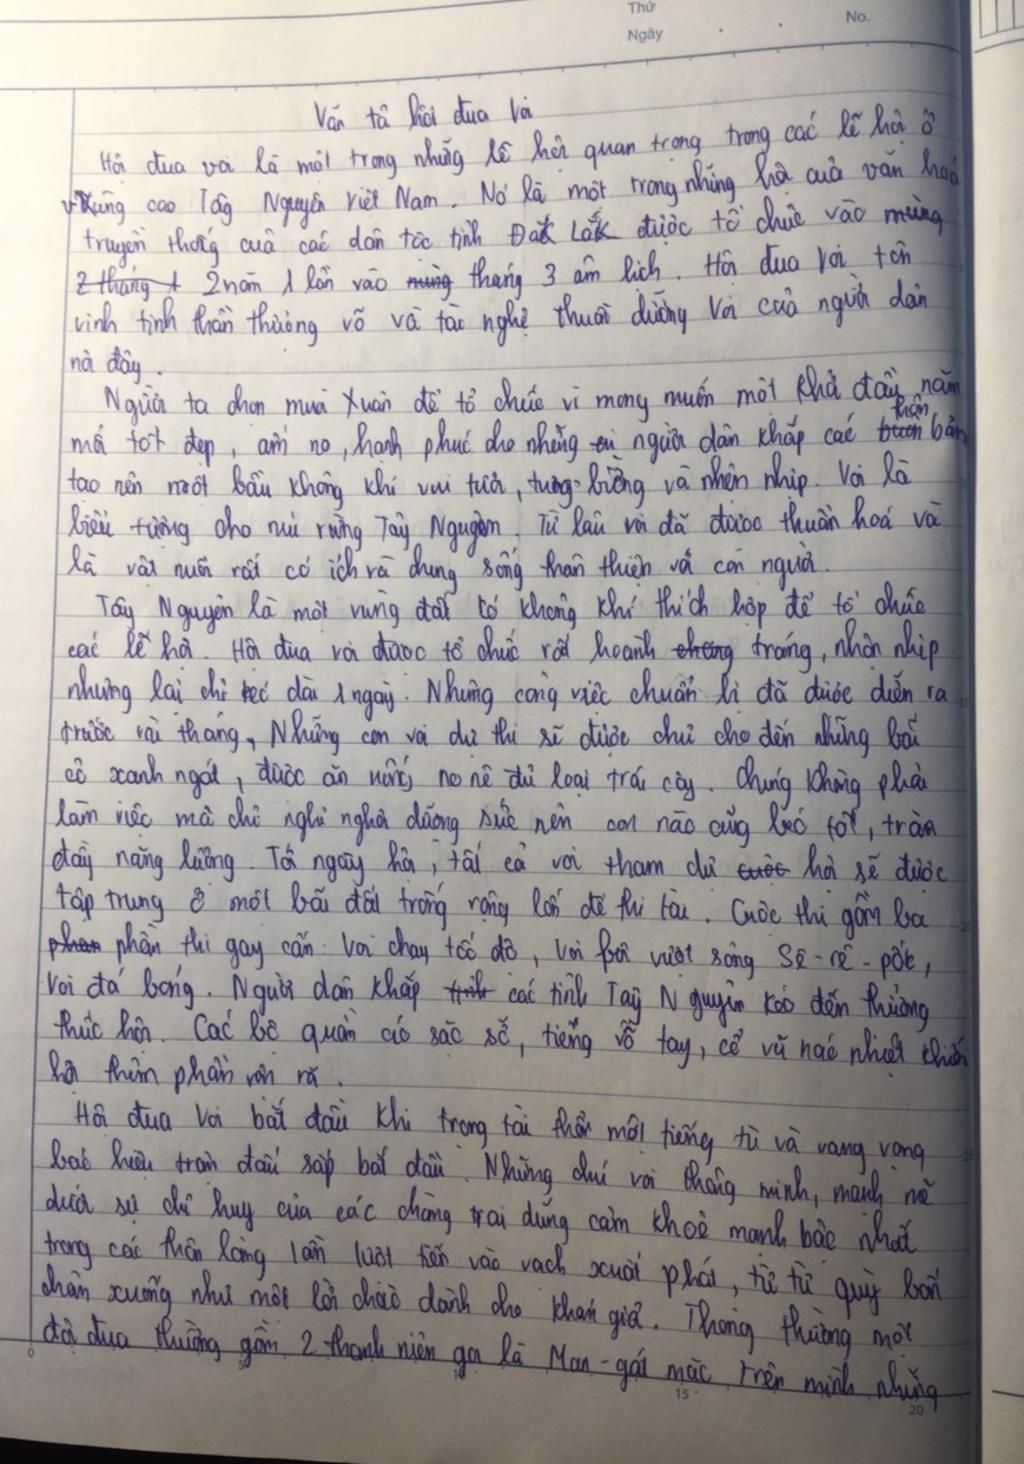 Thứ
Ngày
No.
Văn tả hội đua voi
Hội đua voi là một trong những lễ hội quan trọng trong các lễ hội ở
vùng cao Tây Nguyên Việt Nam. Nó là một trong những hội của văn hoá
truyền thống của các dân tộc tỉnh Đắk Lắk được tổ chức vào mùng
2 tháng 1 2 năm 1 lần vào mùng tháng 3 âm lịch. Hội đua voi tôn
vinh tinh thần thượng võ và tài nghệ thuần dưỡng voi của người dân
nơi đây.
Người ta chọn mùa Xuân để tổ chức vì mong muốn một khởi đầu năm
mới tốt đẹp, ấm no, hạnh phúc cho những người dân khắp các thôn bản
tạo nên một bầu không khí vui tươi, tưng bừng và nhộn nhịp. Voi là
biểu tượng cho núi rừng Tây Nguyên. Từ lâu voi đã được thuần hoá và
là vật nuôi rất có ích và chung sống thân thiện với con người.
Tây Nguyên là một vùng đất có không khí thích hợp để tổ chức
các lễ hội. Hội đua voi được tổ chức rất hoành tráng, nhộn nhịp
nhưng lại chỉ kéo dài 1 ngày. Nhưng công việc chuẩn bị đã được diễn ra
trước vài tháng, Những con voi dự thi sẽ được chủ cho đến những bãi
cỏ xanh ngát, được ăn uống no nê đủ loại trái cây. Chúng không phải
làm việc mà chỉ nghỉ ngơi dưỡng sức nên con nào cũng béo tốt, tràn
đầy năng lượng. Tới ngày hội, tất cả voi tham dự cuộc hội sẽ được
tập trung ở một bãi đất trống rộng lớn để thi tài. Cuộc thi gồm ba
phần phần thi gay cấn: Voi chạy tốc độ, Voi bơi vượt sông Sê-rê-pốk,
Voi đá bóng. Người dân khắp tỉnh các tỉnh Tây Nguyên kéo đến thưởng
thức hội. Các bộ quần áo sặc sỡ, tiếng vỗ tay, cổ vũ náo nhiệt khiến
hội thêm phần rôm rả.
Hội đua voi bắt đầu khi trọng tài thổi một tiếng tù và vang vọng
báo hiệu trận đấu sắp bắt đầu. Những chú voi thông minh, mạnh mẽ
dưới sự chỉ huy của các chàng trai dũng cảm khoẻ mạnh bậc nhất
trong các thôn làng lần lượt tiến vào vạch xuất phát, từ từ quỳ bốn
chân xuống như một lời chào dành cho khán giả. Thông thường một
đội đua thường gồm 2 thanh niên gọi là Man-gát mặc trên mình những
15
20